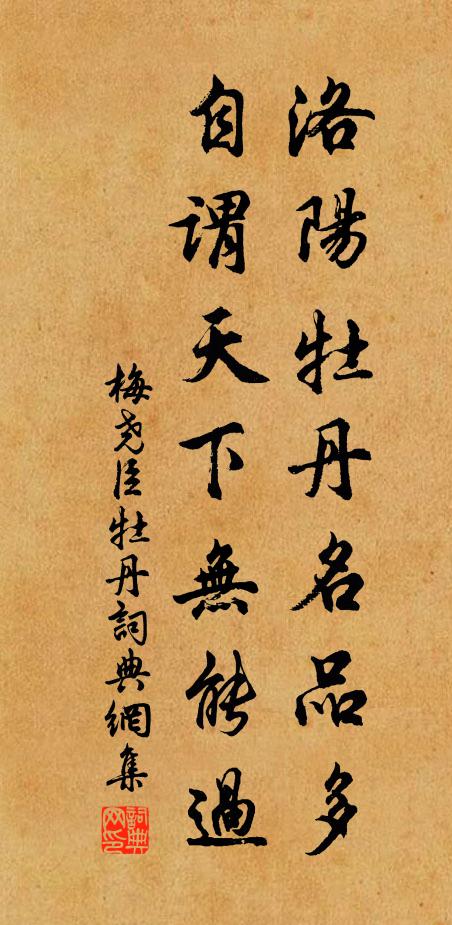 洛陽牡丹名品多
自謂天下無能過
梅堯臣牡丹詞典網集
詞典网印